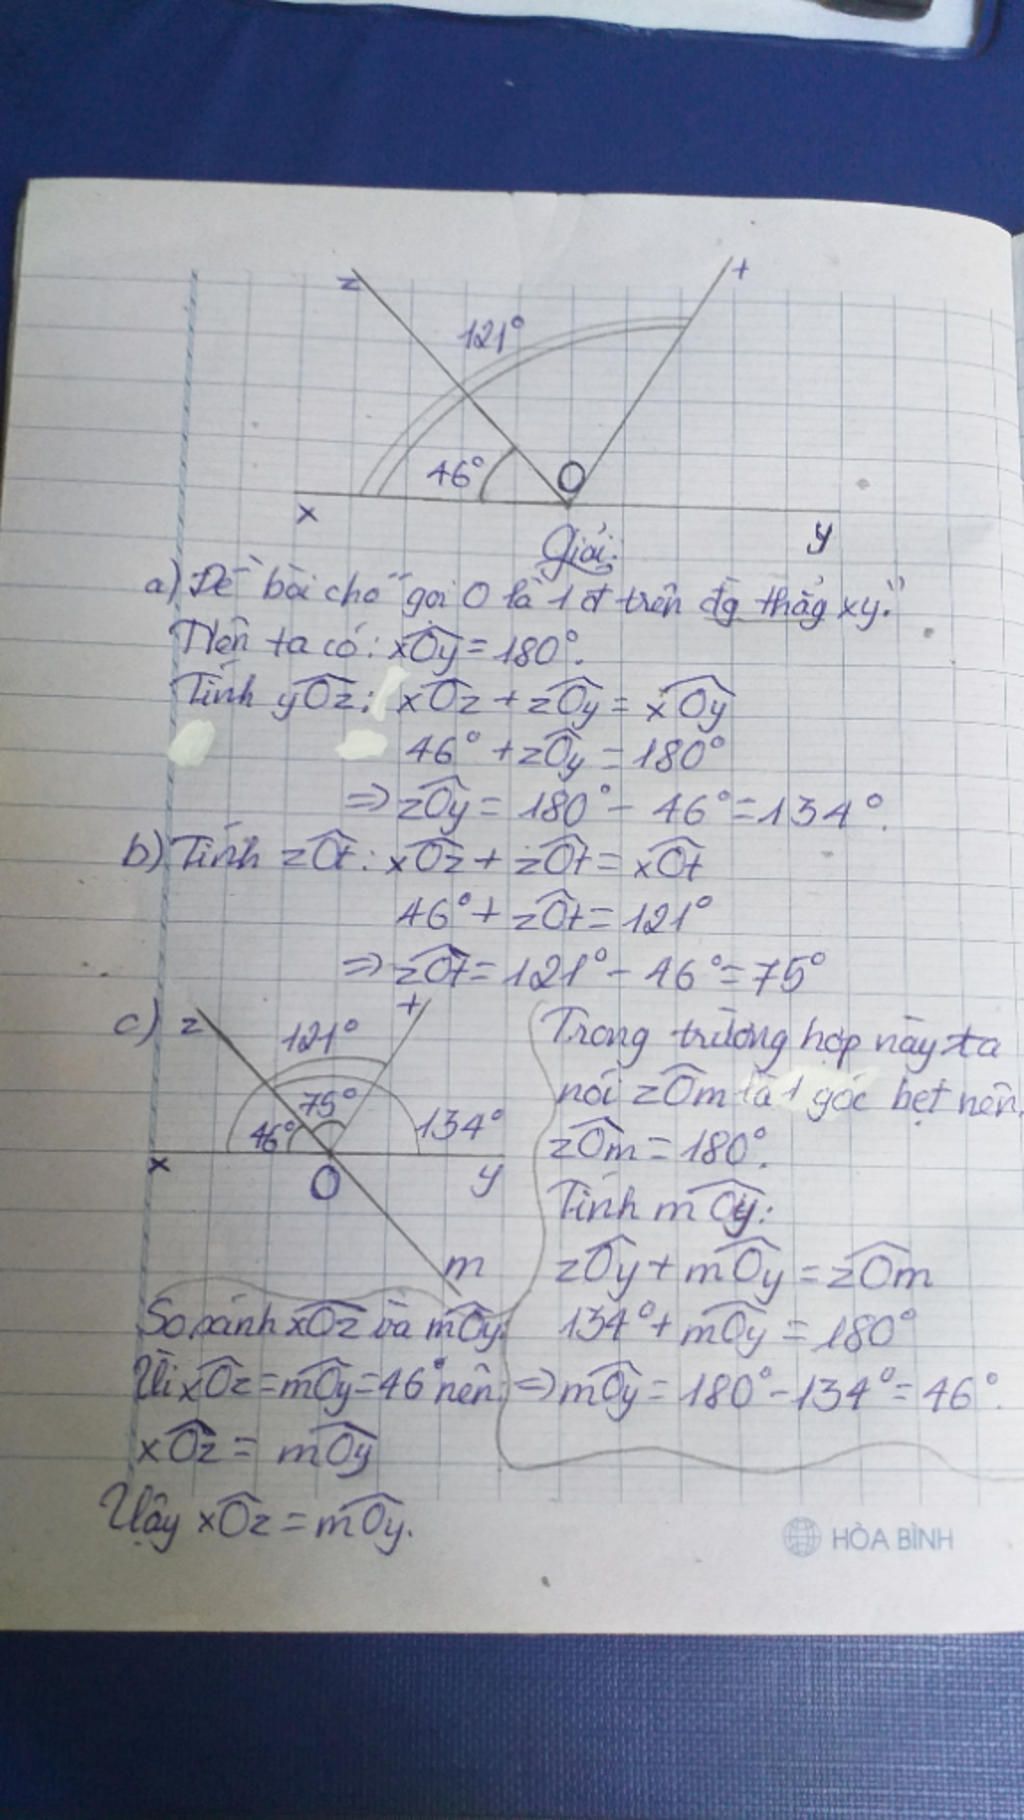 z
t
121°
46°
O
x
y
Giải:
a) Đề bài cho "gọi O là 1 đ trên đg thẳg xy."
Nên ta có: xÔy = 180°.
Tính yÔz: xÔz + zÔy = xÔy
46° + zÔy = 180°
=> zÔy = 180° - 46° = 134°.
b) Tính zÔt: xÔz + zÔt = xÔt
46° + zÔt = 121°
=> zÔt = 121° - 46° = 75°
c)
z
t
121°
75°
46°
134°
x
O
y
m
Trong trường hợp này ta
nói zÔm là 1 góc bẹt nên
zÔm = 180°.
Tính mÔy:
zÔy + mÔy = zÔm
134° + mÔy = 180°
=> mÔy = 180° - 134° = 46°.
So sánh xÔz và mÔy:
Vì xÔz = mÔy = 46° nên
xÔz = mÔy
Vậy xÔz = mÔy.
HÒA BÌNH